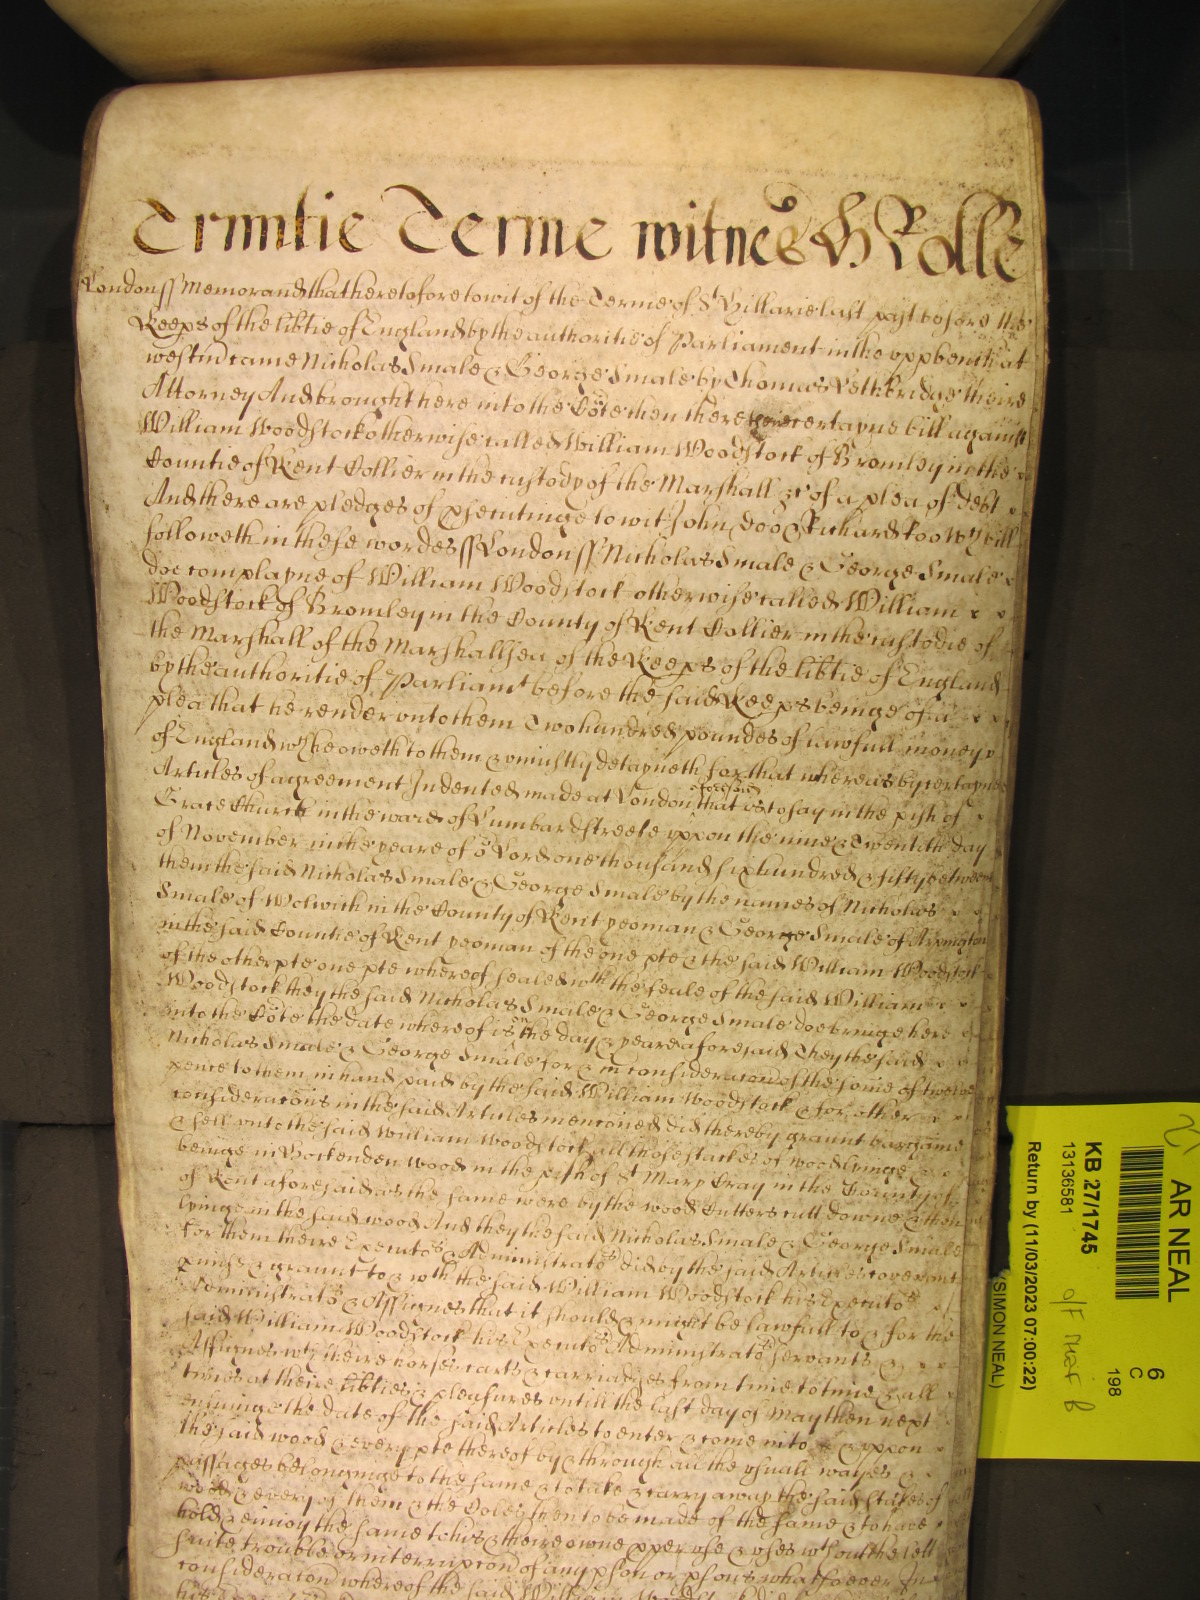 Trinitie Terme witnes H Rolle
London ss Memorand that heretofore to wit of the Terme of St Hillarie last past before the
Keeps of the libtie of England by the authoritie of Parliament in the upp bench at
westm came Nicholas Smale & George Smale by Thomas Lethbridge theire
Attorney And brought here into the Cote then there theire certayne bill against
William Woodstock otherwise called William Woodstock of Bromley in the
Countie of Kent Collier in the custody of the Marshall &c of a plea of debt
And there are pledges of psecutinge to wit John Doo & Richard Roo wch bill
followeth in these wordes ss London ss Nicholas Smale & George Smale
doe complayne of William Woodstock otherwise called William
Woodstock of Bromley in the County of Kent Collier in the custodie of
the Marshall of the Marshallsea of the Keeps of the libtie of England
by the authoritie of Parliamt before the said Keeps beinge of a
plea that he render unto them Two hundred poundes of lawfull money
of England wch he oweth to them & uniustly detayneth for that whereas by certayne
Articles of agreement Indented made at London aforesaid that is to say in the pish of
Grace Church in the ward of Lumbard streete uppon the nine & Twentith day
of November in the yeare of or Lord one thousand six hundred & fifty betweene
them the said Nicholas Smale & George Smale by the names of Nicholas
Smale of Wolwich in the County of Kent yeoman & George Smale of
in the said Countie of Kent yeoman of the one pte & the said William Woodstock
of the other pte one pte whereof sealed wth the seale of the said William
Woodstock they the said Nicholas Smale & George Smale doe bringe here
into the Cote the date whereof is on the day & yeare aforesaid They the said
Nicholas Smale & George Smale for & in consideracon of the some of twelve
pence to them in hand paid by the said William Woodstock & for other
consideracons in the said Articles mencioned did thereby graunt bargaine
& sell unto the said William Woodstock all those stackes of wood lyinge &
beinge in Hockenden wood in the pish of St Mary Cray in the County of
of Kent aforesaid as the same were by the wood Cutters cutt downe & then
lyinge in the said wood And they the said Nicholas Smale & George Smale
for them theire Executors & Administrators did by the said Articles covenant
pmise & graunt to & wth the said William Woodstock his Executors
Administrators & Assignes that it should & might be lawfull to & for the
said William Woodstock his Executors Administrators servants &
Assignes wth theire horses carts & carriadges from time to time & all
times at theire libties & pleasures untill the last day of May then next
ensuinge the date of the said Articles to enter & come into & uppon
the said wood & every pte thereof by & through all the usuall wayes &
passages belonginge to the same & to take & carry away the said stackes of
wood & every of them & the Coles then to be made of the same & to have
hold & enioy the same to his & theire owne pper use & uses wthout the lett
suite trouble or interrupcon of any pson or psons whatsoever In
consideracon whereof the said William Woodstock did
AR NEAL
6
C
198
KB 27/1745
13136581
Return by (11/03/2023 07:00:22)
(SIMON NEAL)